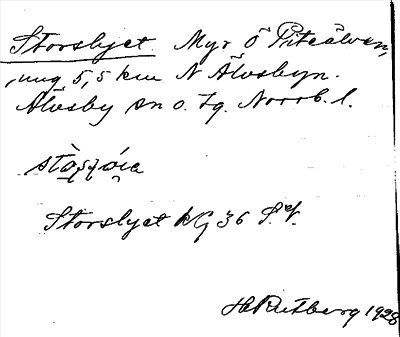 Storslyet. Myr Ö Piteälven,
ung 5,5 km N Älvsbyn.
Älvsby sn o. tg. Norrb. l.
Storslyet kG 36 S.V.
H Rutberg 1928